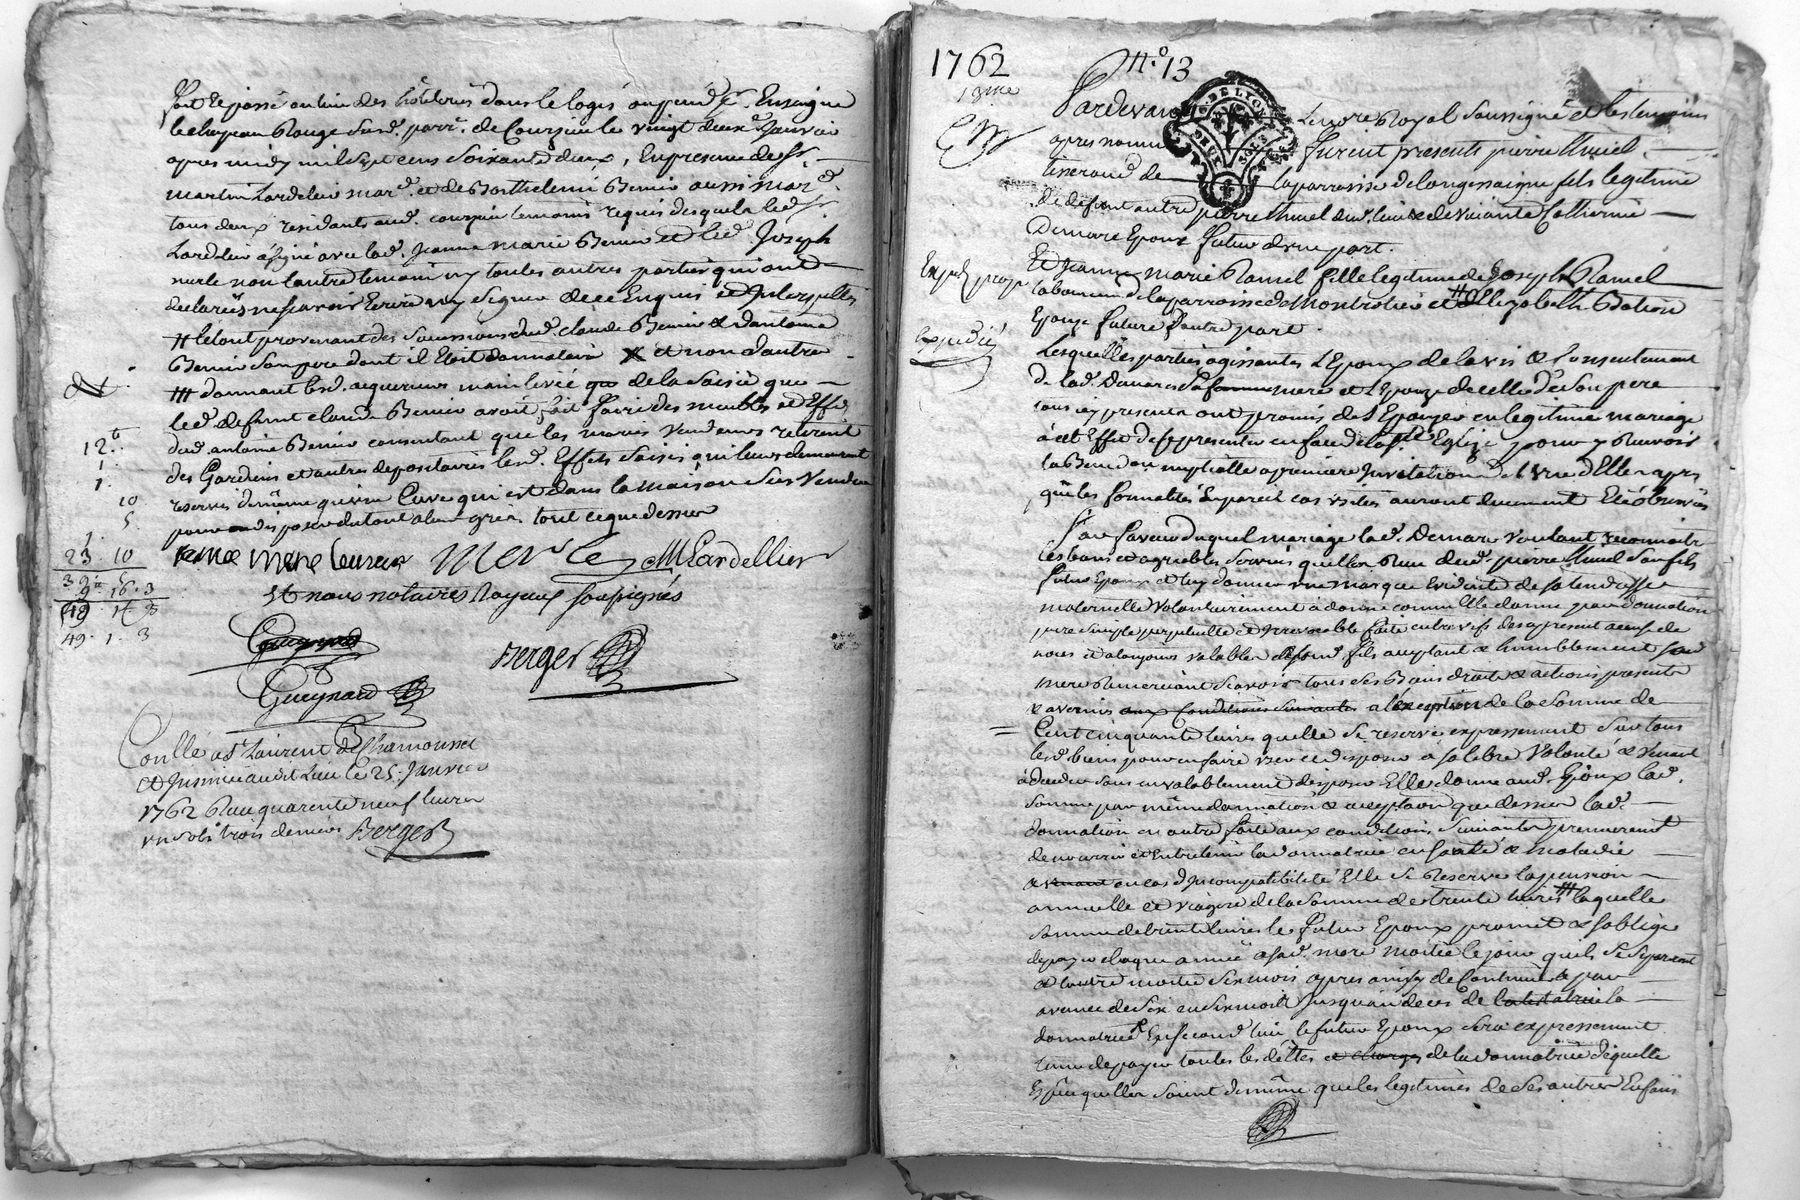 fait et passé au lieu des hôteleries dans le logis ou pend pr. Enseigne
le chapeau Rouge susd. parr. de Courzieu le vingt deux Janvier
apres midy mil sept cens soixante deux, En presence de Sr.
martin Lardelier mar.d et de Barthelemi Bernio aussi mar.d
tous deux residants aud. courzieu temoins requis desquels led. Sr.
Lardelier a signé avec lad. Jeanne marie Bernio et led. Joseph
merle non l'autre temoin ny toutes autres parties qui ont
declarés ne scavoir Ecrire ny signer de ce Enquis et Interpellés
# le tout provenant des successions dud. claude Bernio & d'antoine
Bernio son pere dont il Etoit donnataire X et non d'autre
## donnant lesd. acquereurs main levée que de la saisie que
led. defunt claude Bernio avoit fait faire des meubles et Effets
dud. antoine Bernio consentant que les mariés vendeurs retirent
des Gardiens et autres depositaires lesd. Effets saisis qui leurs demeurent
reservés de même qu'une Cuve qui est dans la maison sus vendue
pour en disposer du tout a leur gré. tout ce que dessus
12.
1.
1.
10
5
1.
23. 10
39. 16. 3
49. 1. 3
Merle M Lardellier
Et nous notaires Royaux soussignés
Gueynard
Berger
Gueynard
Conllé a St Laurent de Chamousset
et Insinué audit Lieu le 25. Janvier
1762 Reçu quarente neuf livres
un sols trois deniers Berger
1762
N.º 13
13me
Pardevant Le no.re Royal soussigné et les temoins
GENER. DE LYON
DEUX SOLS
apres nommés furent presents pierre Thuiel
tisserand de la parroisse de longessaigne fils legitime
de defunt autre pierre Thuiel dud. lieu & de vivante Catherine
Demare Epoux futur d'une part.
Et Jeanne marie Ramel fille legitime de Joseph Ramel
laboureur de la parroisse de Montrotier et # d'Elizabeth Bation
Epouse future d'autre part.
expedié
Lesquelles parties agissantes L'Epoux de l'avis & consentement
de lad. Demare sa femme mere et L'Epouse de celle de son pere
tous icy presents ont promis de s'Epouser en legitime mariage
a cet Effet de se presenter en face de la Ste Eglise pour y Recevoir
la Bened.on nuptialle a premiere Invitation de l'une d'Elles apres
que les formalités En pareil cas usitées auront duement Eté observées
En faveur duquel mariage lad. Demare voulant reconnoitre
les bons et agreables services qu'elle a Reçu dud. pierre Thuiel son fils
futur Epoux et luy donner une marque Evidente de sa tendresse
maternelle volontairement a donné comme Elle donne par donnation
pure simple perpetuelle et Irrevocable faite entre vifs des a present
et a toujours valable aud. son fils acceptant & humblement sad.
mere Remerciant scavoir tous ses Biens droits & actions presents
& avenir aux conditions suivantes a l'exception de la somme de
= Cent cinquante livres qu'elle se reserve expressement sur tous
lesd. biens pour en faire user et disposer a sa libre volonté & venant
a deceder sans en valablement disposer Elle donne aud. Epoux lad.
somme par même donnation & acceptation que dessus lad.
donnation en outre faite aux conditions suivantes premierement
de nourrir et Entretenir la donnatrice en santé & maladie
& venant en cas d'Incompatibilité Elle se Reserve la pension
annuelle et viagere de la somme de trente livres ## laquelle
somme de trente livres le futur Epoux promet & s'oblige
de payer chaque année a sad. mere moitié le jour qu'ils se separeront
& l'autre moitié six mois apres ainsy de Continuer & par
avance de six en six mois Jusqu'au deces de la testatrice la
donnatrice En second lieu le futur Epoux sera expressement
tenu de payer toutes les dettes et charges de la donnatrice
qu'elles soient de même que les legitimes de ses autres Enfans